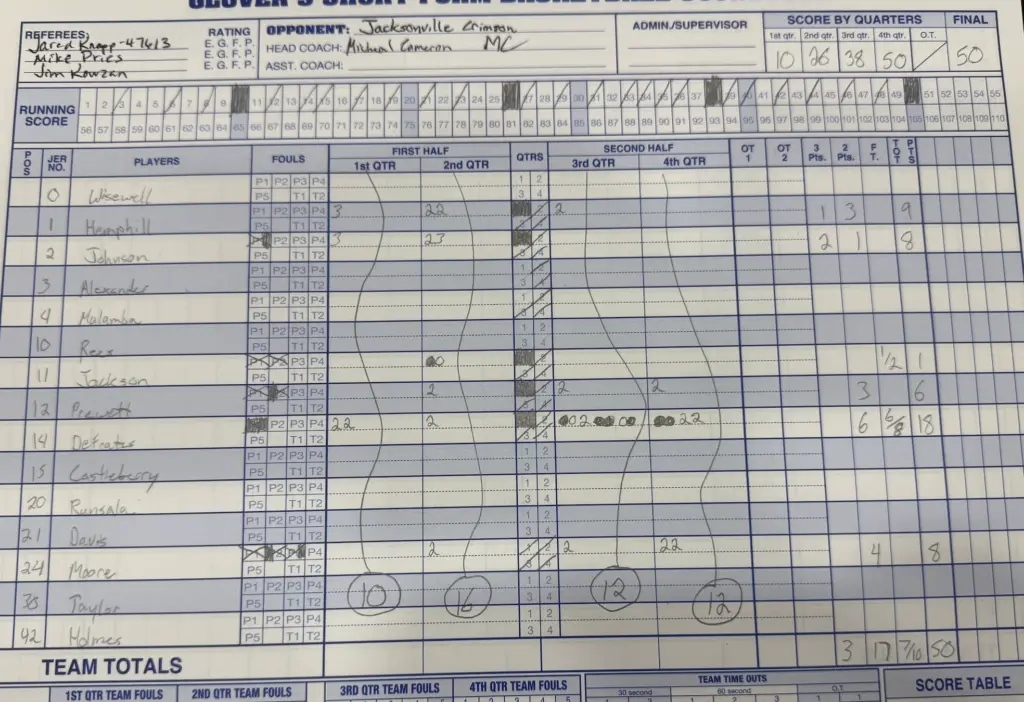 GLOVER'S SHORT FORM BASKETBALL
REFEREES: RATING
Jared Knapp-47613 E. G. F. P.
Mike Pries E. G. F. P.
Jim Kowzan E. G. F. P.
OPPONENT: Jacksonville Crimson
HEAD COACH: Michael Cameron MC
ASST. COACH:
ADMIN./SUPERVISOR
SCORE BY QUARTERS FINAL
1st qtr. 2nd qtr. 3rd qtr. 4th qtr. O.T.
10 26 38 50 / 50
RUNNING SCORE
1 2 3 4 5 6 7 8 9 11 12 13 14 15 16 17 18 19 20 21 22 23 24 25 27 28 29 30 31 32 33 34 35 36 37 39 40 41 42 43 44 45 46 47 48 49 51 52 53 54 55
56 57 58 59 60 61 62 63 64 65 66 67 68 69 70 71 72 73 74 75 76 77 78 79 80 81 82 83 84 85 86 87 88 89 90 91 92 93 94 95 96 97 98 99 100 101 102 103 104 105 106 107 108 109 110
POS JER NO. PLAYERS FOULS FIRST HALF 1st QTR 2nd QTR QTRS SECOND HALF 3rd QTR 4th QTR OT 1 OT 2 3 Pts. 2 Pts. F T. TOT PTS
0 Wisewell P1 P2 P3 P4 P5 T1 T2 1 2 3 4
1 Hemphill P1 P2 P3 P4 P5 T1 T2 3 22 2 1 3 9
2 Johnson P2 P3 P4 P5 T1 T2 3 23 2 1 8
3 Alexander P1 P2 P3 P4 P5 T1 T2
4 Malamba P1 P2 P3 P4 P5 T1 T2
10 Rees P1 P2 P3 P4 P5 T1 T2 1 2 3 4
11 Jackson P1 P2 P3 P4 P5 T1 T2 1/2 1
12 Prewett P1 P2 P3 P4 P5 T1 T2 2 2 2 3 6
14 DeFrates P2 P3 P4 P5 T1 T2 22 2 2 22 6 6/8 18
15 Castleberry P1 P2 P3 P4 P5 T1 T2 1 2 3 4
20 Runsala P1 P2 P3 P4 P5 T1 T2 1 2 3 4
21 Davis P1 P2 P3 P4 P5 T1 T2 1 2 3 4
24 Moore P4 P5 T1 T2 2 2 22 4 8
30 Taylor P1 P2 P3 P4 P5 T1 T2 1 2 3 4
42 Holmes P1 P2 P3 P4 P5 T1 T2 1 2 3 4
10 16 12 12
TEAM TOTALS 3 17 7/10 50
1ST QTR TEAM FOULS 2ND QTR TEAM FOULS 3RD QTR TEAM FOULS 4TH QTR TEAM FOULS TEAM TIME OUTS SCORE TABLE
30 second 60 second O.T.